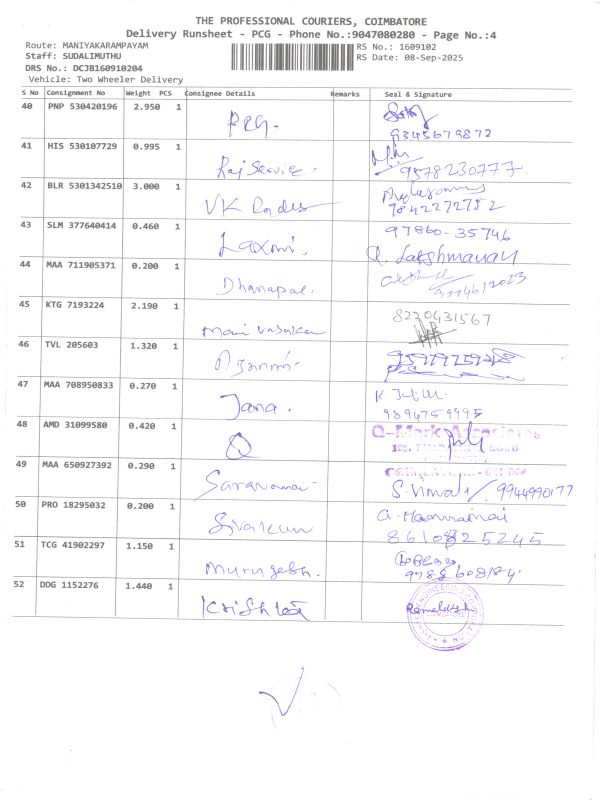 THE PROFESSIONAL COURIERS, COIMBATORE
Delivery Runsheet - PCG - Phone No.:9047080280 - Page No.:4
Route: MANIYAKARAMPAYAM
RS No.: 1609102
Staff: SUDALIMUTHU
RS Date: 08-Sep-2025
DRS No.: DCJB160910204
Vehicle: Two Wheeler Delivery
S No Consignment No Weight PCS Consignee Details Remarks Seal & Signature
40 PNP 530420196 2.950 1
9345679872
41 HIS 530107729 0.995 1 Raj Service.
9578230777
42 BLR 5301342510 3.000 1 VK
9842272752
43 SLM 377640414 0.460 1 Laxmi. 97860-35746
Lakshmanan
44 MAA 711905371 0.200 1 Dhanapal.
45 KTG 7193224 2.190 1 8220431567
46 TVL 205603 1.320 1
47 MAA 708950833 0.270 1 Jana. K.
9894759995
48 AMD 31099580 0.420 1 Q-Mark Associates
49 MAA 650927392 0.290 1 Saravana 9944990177
50 PRO 18295032 0.200 1 Sivakum
8610825245
51 TCG 41902297 1.150 1 Murugesh.
52 DDG 1152276 1.440 1